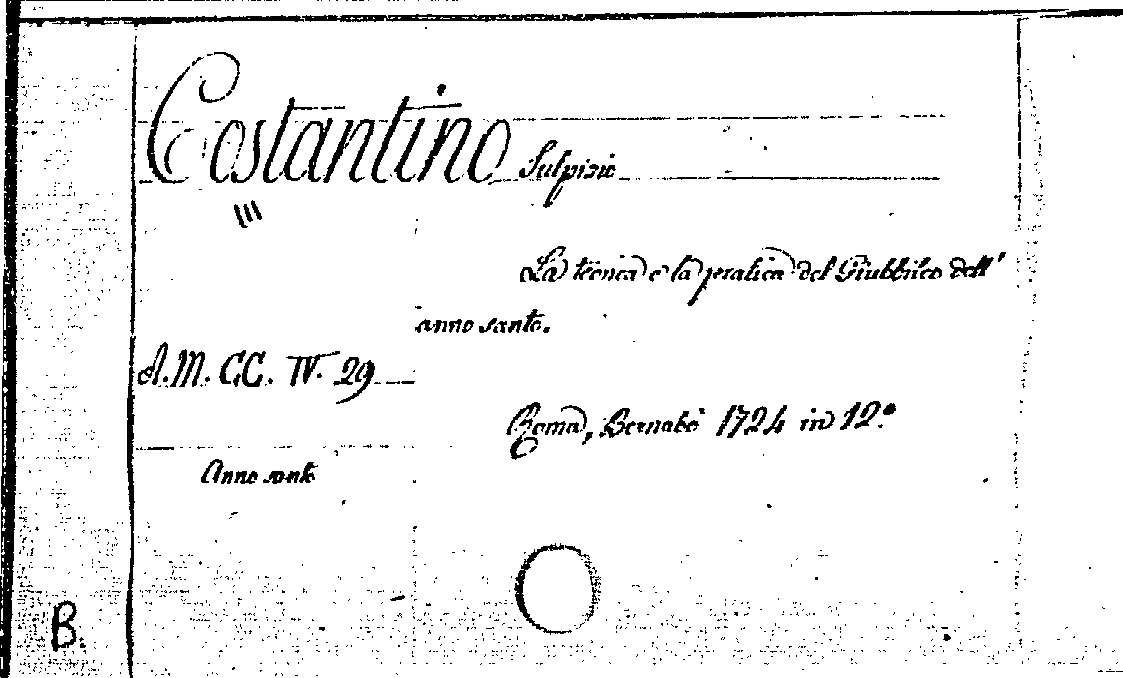 Costantino Sulpizio
La tecnica e la pratica del Giubbileo dell'
anno santo.
A.M. CC. IV. 29
Roma, Bernabò 1724 in 12.º
Anno santo
B.